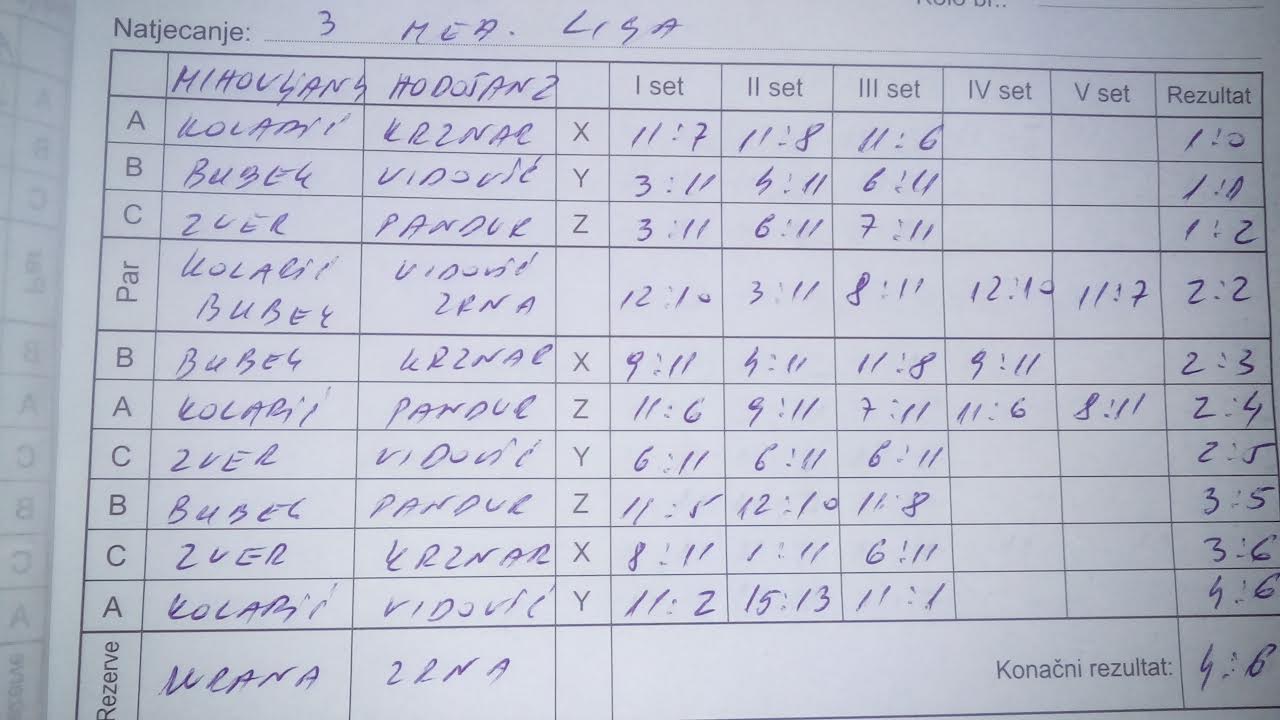 Natjecanje: 3 MEĐ. LIGA
MIHOVLJANY HODOŠAN 2 I set II set III set IV set V set Rezultat
A KOLARIĆ KRZNAR X 11:7 11:8 11:6 1:0
B BUBEK VIDOVIĆ Y 3:11 4:11 6:11 1:1
C ZVER PANDUR Z 3:11 6:11 7:11 1:2
Par KOLARIĆ VIDOVIĆ 12:10 3:11 8:11 12:10 11:7 2:2
BUBEK ZRNA
B BUBEK KRZNAR X 9:11 4:11 11:8 9:11 2:3
A KOLARIĆ PANDUR Z 11:6 9:11 7:11 11:6 8:11 2:4
C ZVER VIDOVIĆ Y 6:11 6:11 6:11 2:5
B BUBEK PANDUR Z 11:5 12:10 11:8 3:5
C ZVER KRZNAR X 8:11 1:11 6:11 3:6
A KOLARIĆ VIDOVIĆ Y 11:2 15:13 11:1 4:6
Rezerve MRANA ZRNA Konačni rezultat: 4:6